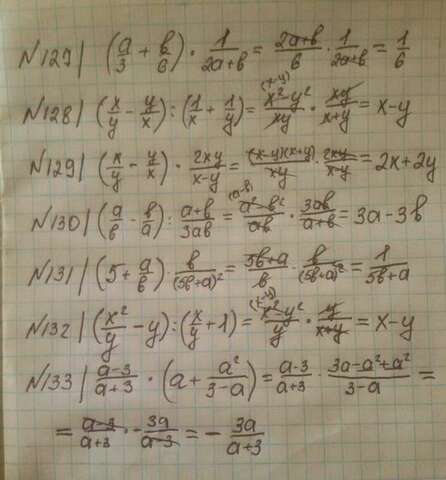 №129| (a/3 + b/6) · 1/(2a+b) = (2a+b)/6 · 1/(2a+b) = 1/6
№128| (x/y - y/x) : (1/x + 1/y) = (x-y) (x²-y²)/xy · xy/(x+y) = x-y
№129| (x/y - y/x) · 2xy/(x-y) = (x-y)(x+y)/xy · 2xy/(x-y) = 2x+2y
№130| (a/b - b/a) : (a+b)/3ab = (a-b) (a²-b²)/ab · 3ab/(a+b) = 3a-3b
№131| (5 + a/b) · b/(5b+a)² = (5b+a)/b · b/(5b+a)² = 1/(5b+a)
№132| (x²/y - y) : (x/y + 1) = (x-y) (x²-y²)/y · y/(x+y) = x-y
№133| (a-3)/(a+3) · (a + a²/(3-a)) = (a-3)/(a+3) · (3a-a²+a²)/(3-a) =
= (a-3)/(a+3) · - 3a/(a-3) = - 3a/(a+3)